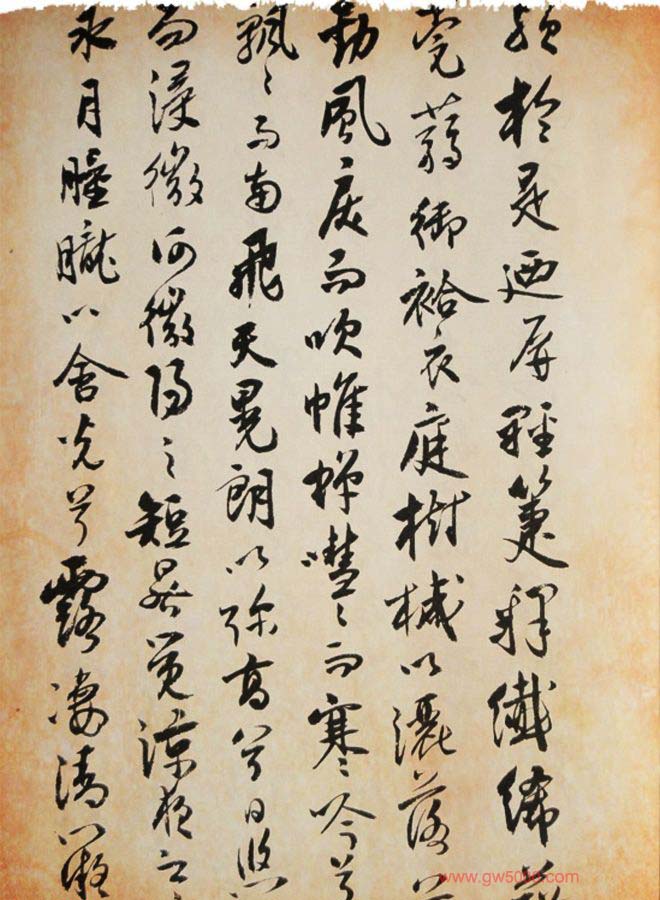 殞於是迺屏輕箑釋纖絺藉
莞蒻御袷衣庭樹槭以灑落兮
勁風戾而吹帷蟬嘒〻而寒吟兮
飄〻而南飛天晃朗以弥高兮日悠
而浸微何微陽之短晷覺涼夜之
永月朣朧以含光兮露凄清以凝